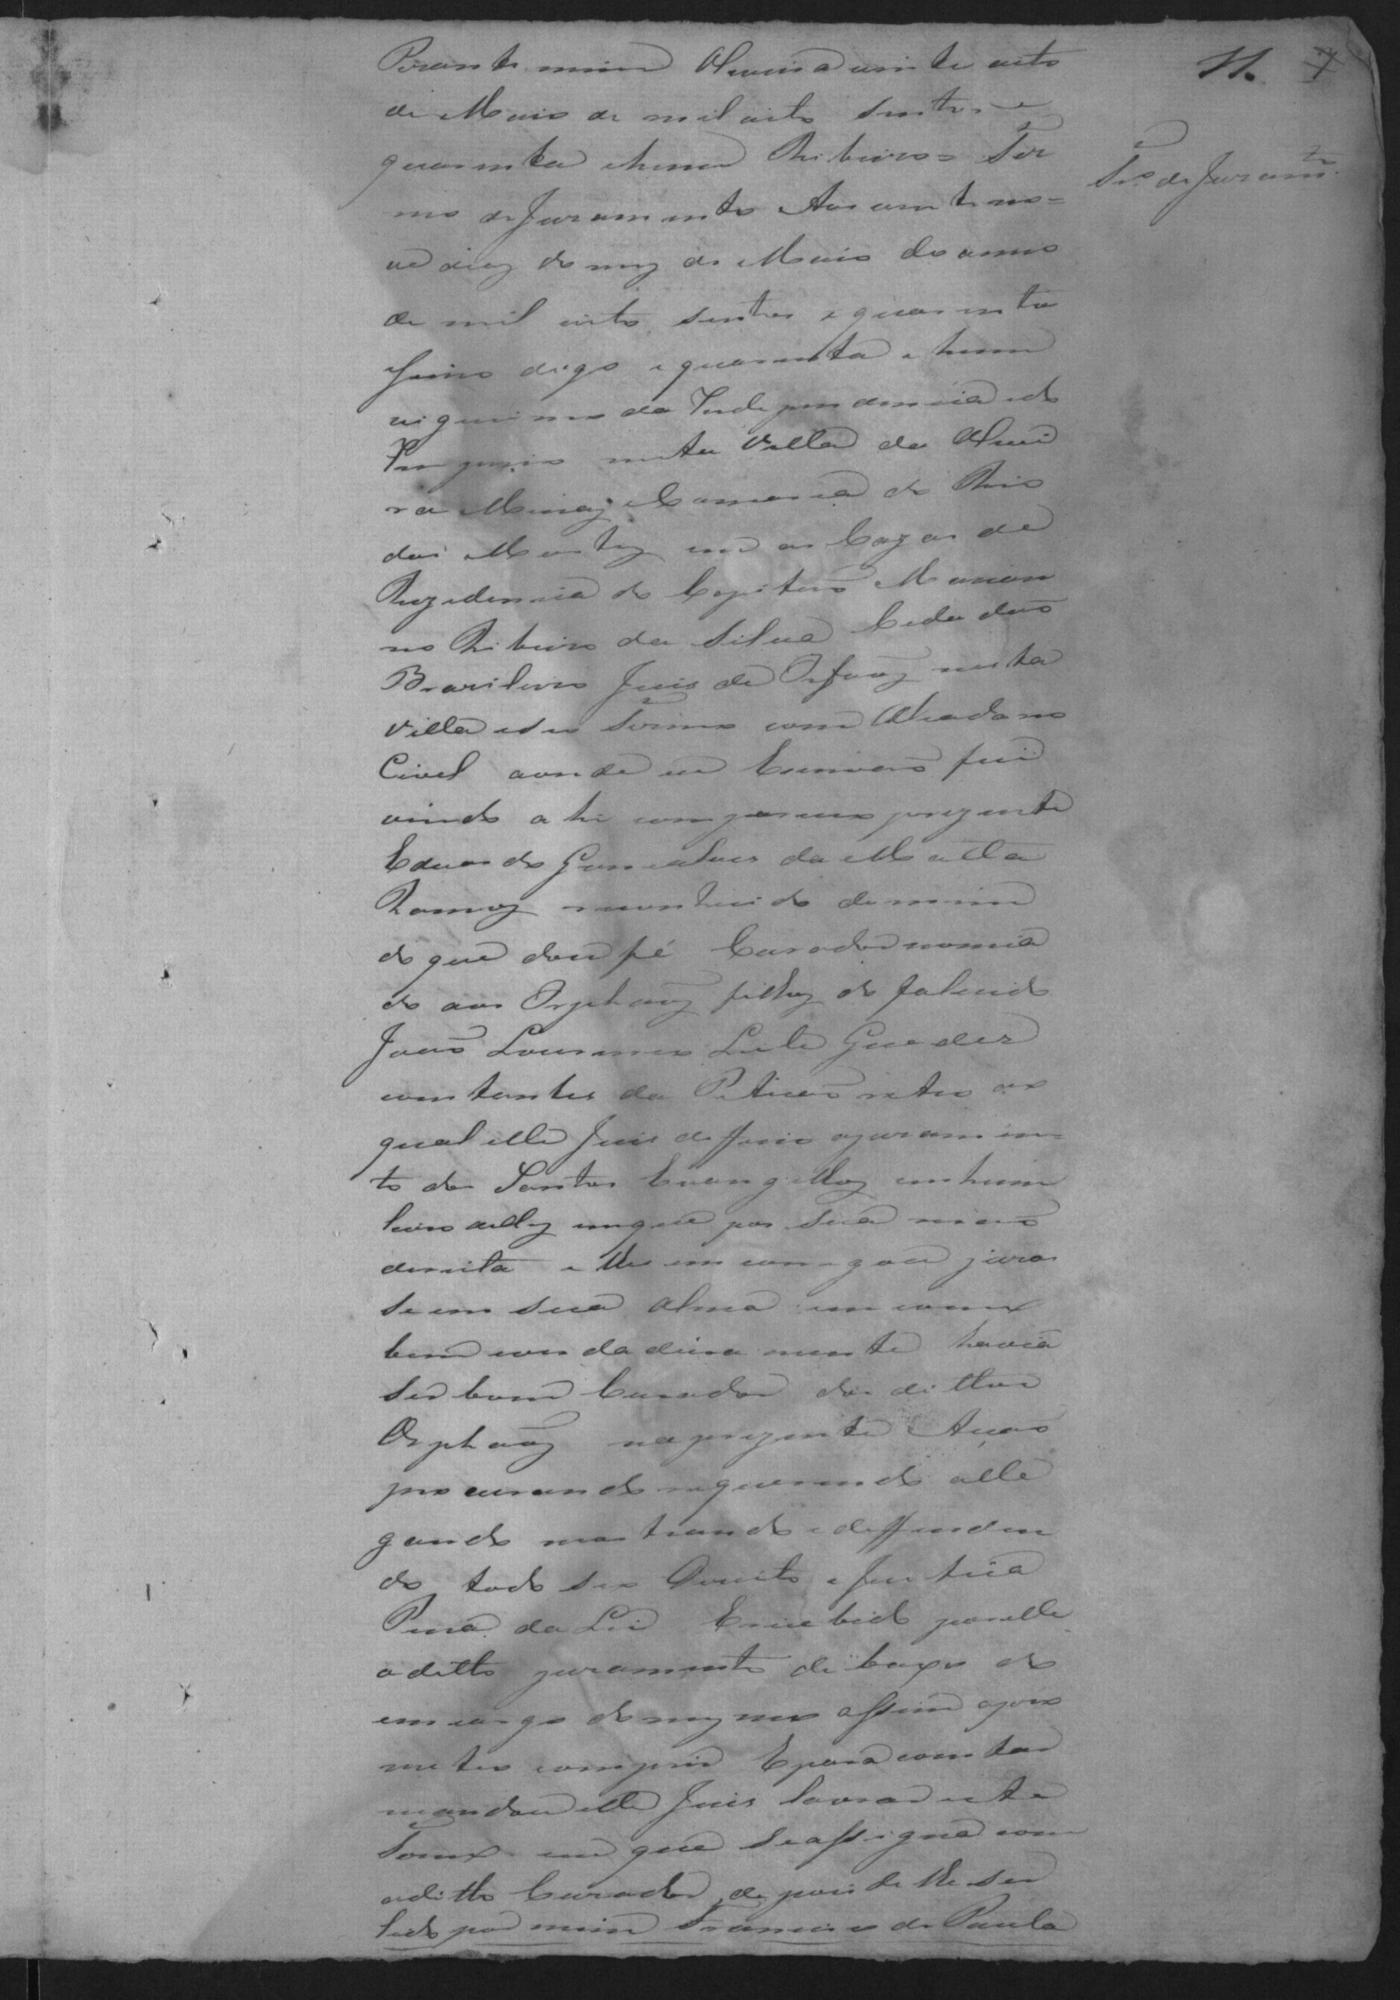 11. 7
Perante mim Oliveira vinte oito
de Maio de mil oito sentos e
quarenta e hum Ribeiro = Ter
T.º de Juram.to
mo de Juramento Aos vinte no=
ve dias do mez de Maio do anno
de mil oito sentos e quarenta
digo e quarenta e hum
vigesimo da Independencia e do
Imperio nesta Villa de Olivei
ra Minas e Comarca do Rio
das Mortes em as Cazas de
Rezidencia do Capitão Marian
no Ribeiro da Silva Cidadão
Brasileiro Juis de Orfaoz nesta
Villa e seu Termo com Alsada no
Civel aonde eu Escrivão fui
vindo ahi compareceu prezente
Eduardo Gonsalves da Matta
Ramoz reconhecido de mim
do que dou fé Curador nomia
do aos Orphaoz filhoz do falecido
João Lourenço Leite Guedes
constantes da Petição retro ao
qual elle Juis deffirio o juramen=
to dos Santos Evangelhoz em hum
livro delles em que pos sua mão
direita e lhe emcarregou juras
se em sua alma em como
bem e verdadeiramente havia
ser bom Curador dos dittos
Orphaoz na prezente Aução
procurando requerendo alle
gando mostrando e deffenden
do todo seu Direito e Justiça
Pena da Lei E recebido por elle
o ditto juramento debaxo do
emcargo do mesmo assim o pro
meteo comprir E para constar
mandou elle Juis lavrar este
Termo em que se assigna com
o ditto Curador depois de lhe ser
lido por mim Francisco de Paula